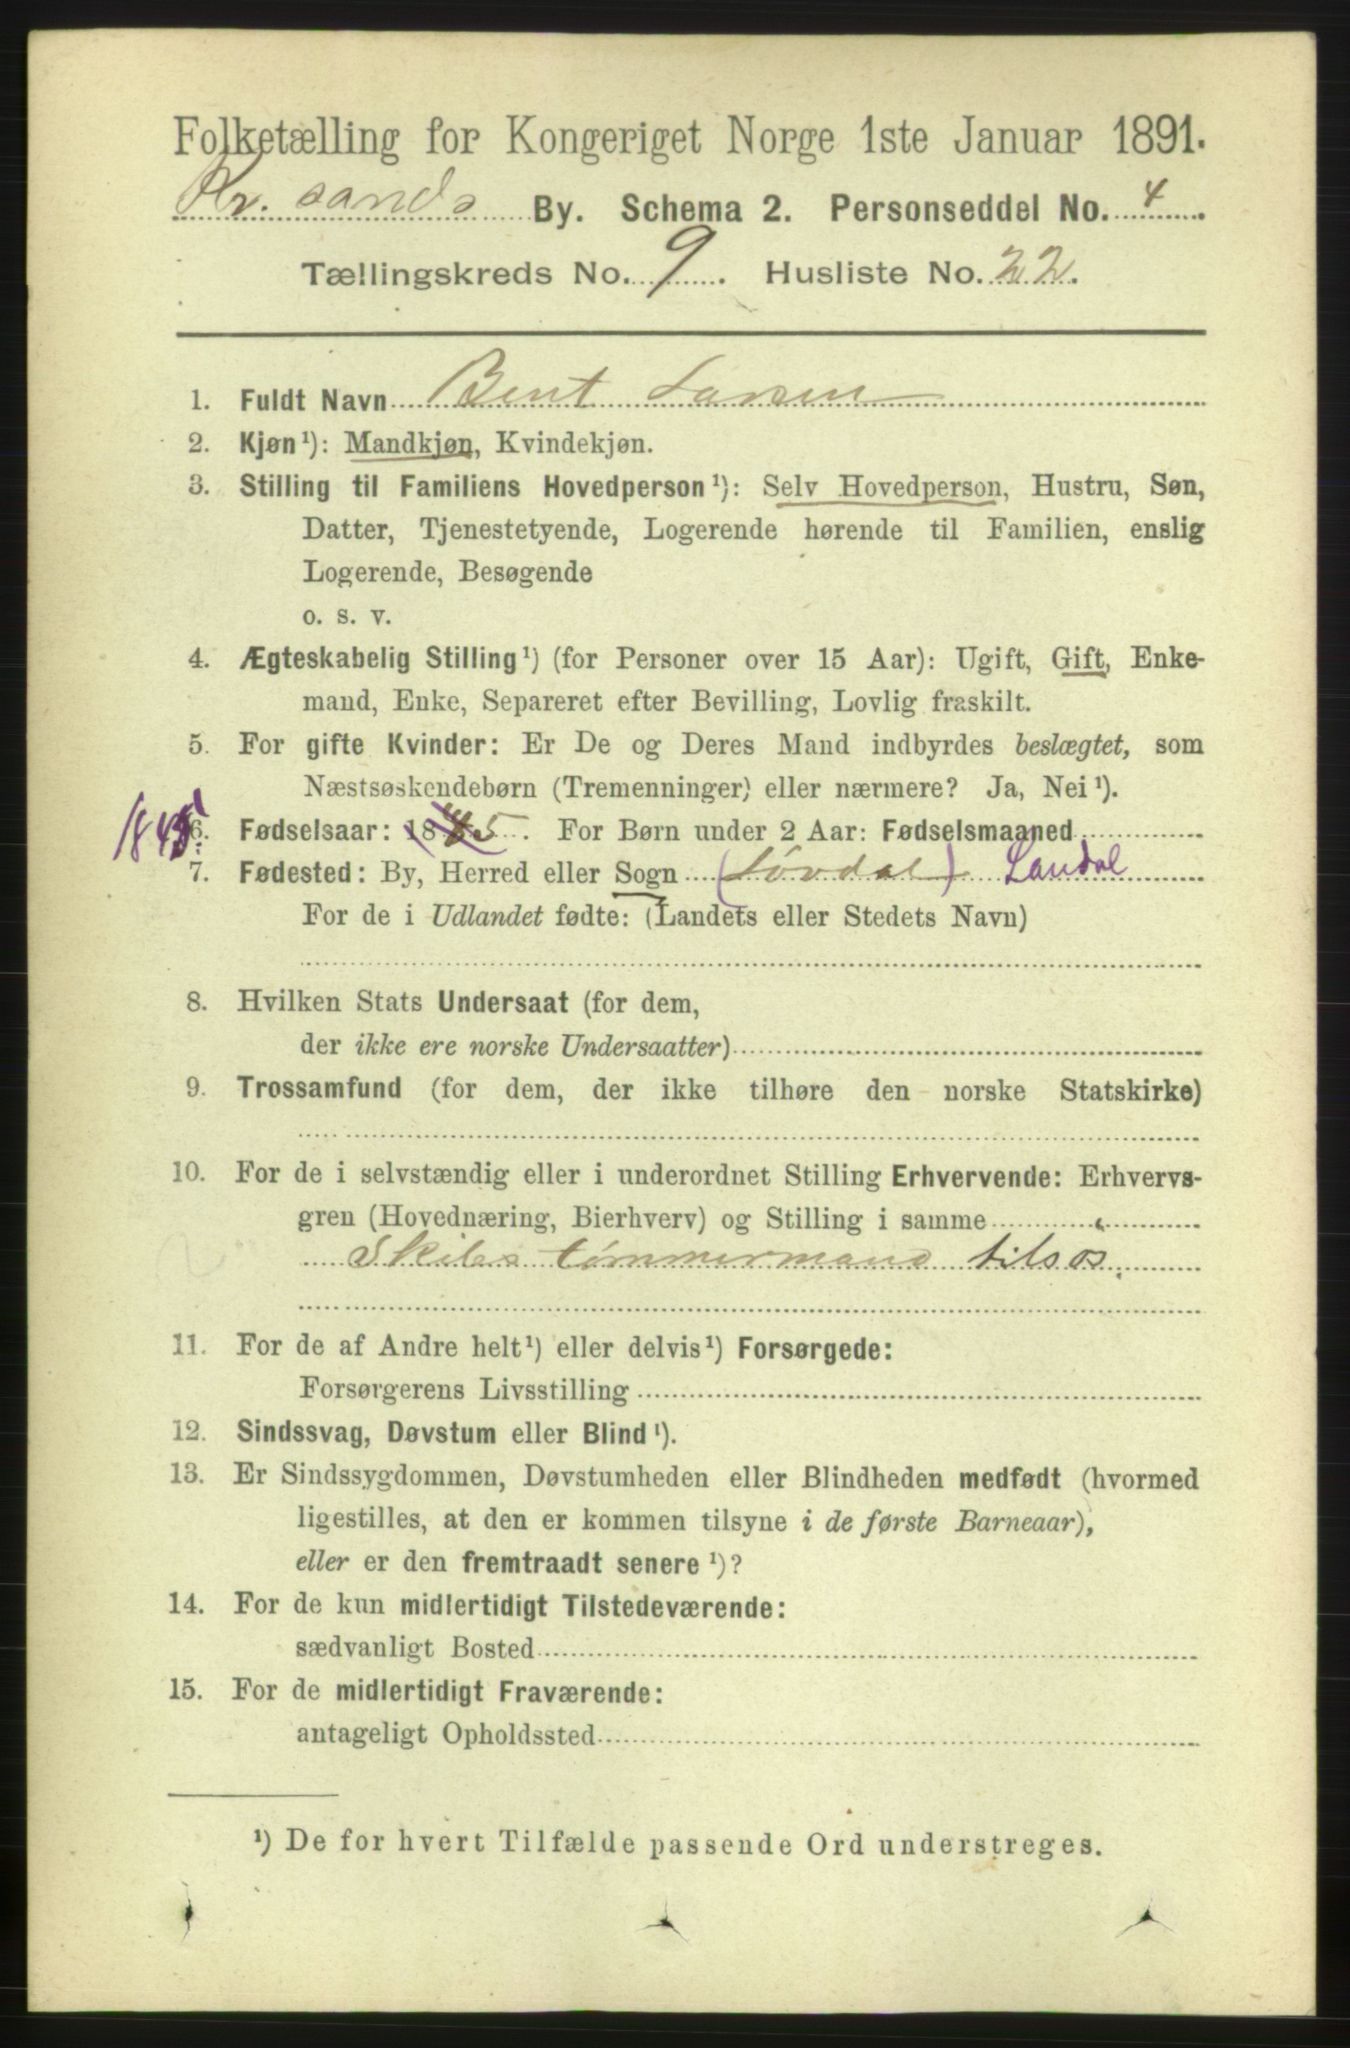 Folketælling for Kongeriget Norge 1ste Januar 1891.
Kr. sands By. Schema 2. Personseddel No. 4.
Tællingskreds No. 9. Husliste No. 22.
1. Fuldt Navn Bent Larsen
2. Kjøn¹): Mandkjøn, Kvindekjøn.
3. Stilling til Familiens Hovedperson¹): Selv Hovedperson, Hustru, Søn,
Datter, Tjenestetyende, Logerende hørende til Familien, enslig
Logerende, Besøgende
o. s. v.
4. Ægteskabelig Stilling¹) (for Personer over 15 Aar): Ugift, Gift, Enke-
mand, Enke, Separeret efter Bevilling, Lovlig fraskilt.
5. For gifte Kvinder: Er De og Deres Mand indbyrdes beslægtet, som
Næstsøskendebørn (Tremenninger) eller nærmere? Ja, Nei¹).
1845 6. Fødselsaar: 1845. For Børn under 2 Aar: Fødselsmaaned
7. Fødested: By, Herred eller Sogn (Løvdal) Laudal
For de i Udlandet fødte: (Landets eller Stedets Navn)
8. Hvilken Stats Undersaat (for dem,
der ikke ere norske Undersaatter)
9. Trossamfund (for dem, der ikke tilhøre den norske Statskirke)
10. For de i selvstændig eller i underordnet Stilling Erhvervende: Erhvervs-
gren (Hovednæring, Bierhverv) og Stilling i samme
Skibstømmermand tilsøs.
11. For de af Andre helt¹) eller delvis¹) Forsørgede:
Forsørgerens Livsstilling
12. Sindssvag, Døvstum eller Blind¹).
13. Er Sindssygdommen, Døvstumheden eller Blindheden medfødt (hvormed
ligestilles, at den er kommen tilsyne i de første Barneaar),
eller er den fremtraadt senere¹)?
14. For de kun midlertidigt Tilstedeværende:
sædvanligt Bosted
15. For de midlertidigt Fraværende:
antageligt Opholdssted
¹) De for hvert Tilfælde passende Ord understreges.